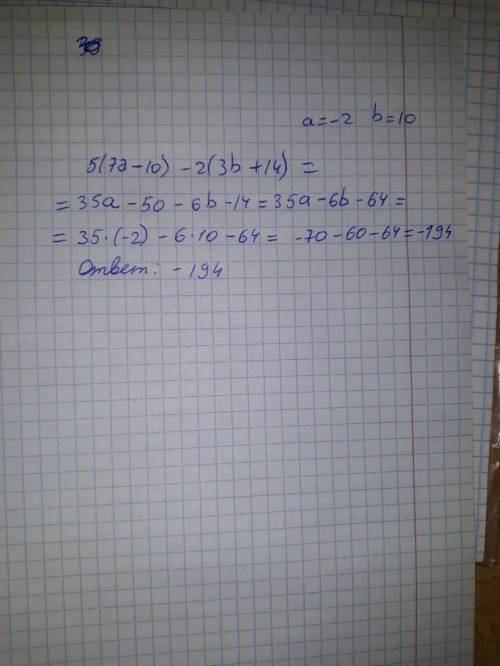 a=-2 b=10
5(7a-10) -2(3b+14) =
= 35a - 50 - 6b - 14 = 35a - 6b - 64 =
= 35·(-2) - 6·10 - 64 = -70 - 60 - 64 = -194
Ответ: -194